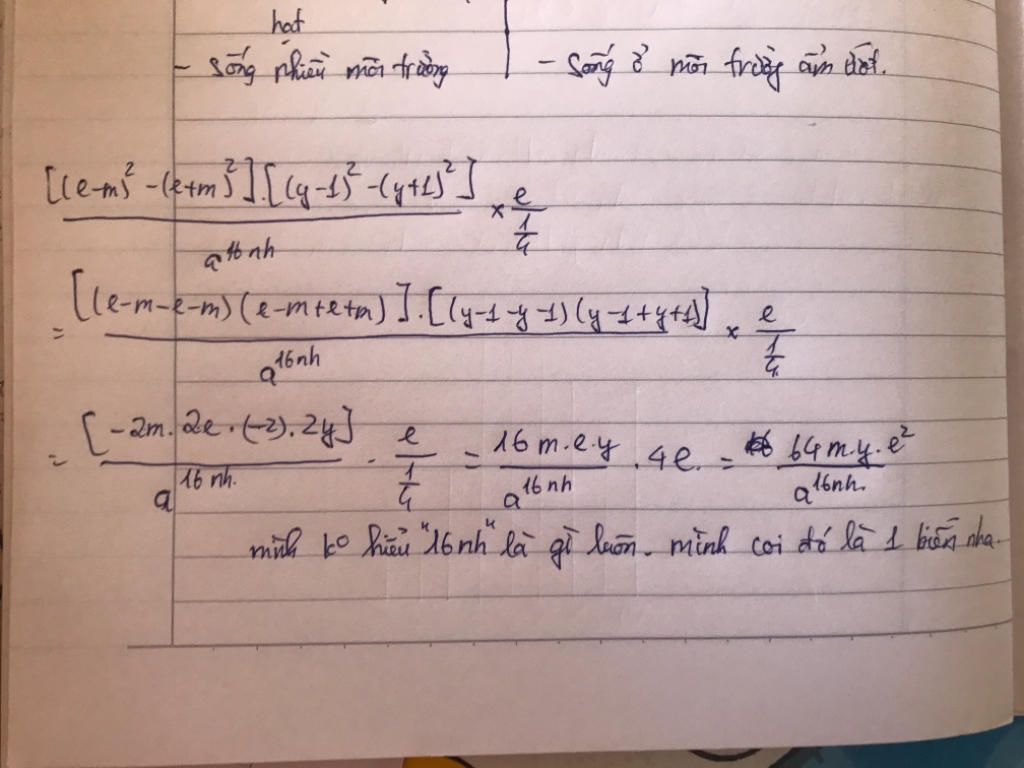 hoạt
- Sống nhiều môi trường - Sống ở môi trường ẩm ướt.
[(e-m)² -(e+m)²].[(y-1)² -(y+1)²] / a^16nh × e / (1/4)
= [(e-m-e-m)(e-m+e+m)].[(y-1-y-1)(y-1+y+1)] / a^16nh × e / (1/4)
= [-2m.2e.(-2).2y] / a^16nh. . e / (1/4) = 16m.e.y / a^16nh . 4e. = 64m.y.e² / a^16nh.
mình ko hiểu "16nh" là gì luôn. mình coi đó là 1 biến nha.